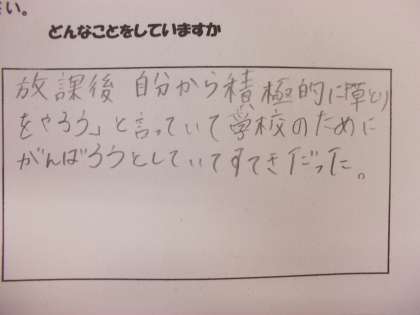 さい。
どんなことをしていますか
放課後 自分から積極的に「草とり
をやろう」と言っていて学校のために
がんばろうとしていてすてきだった。